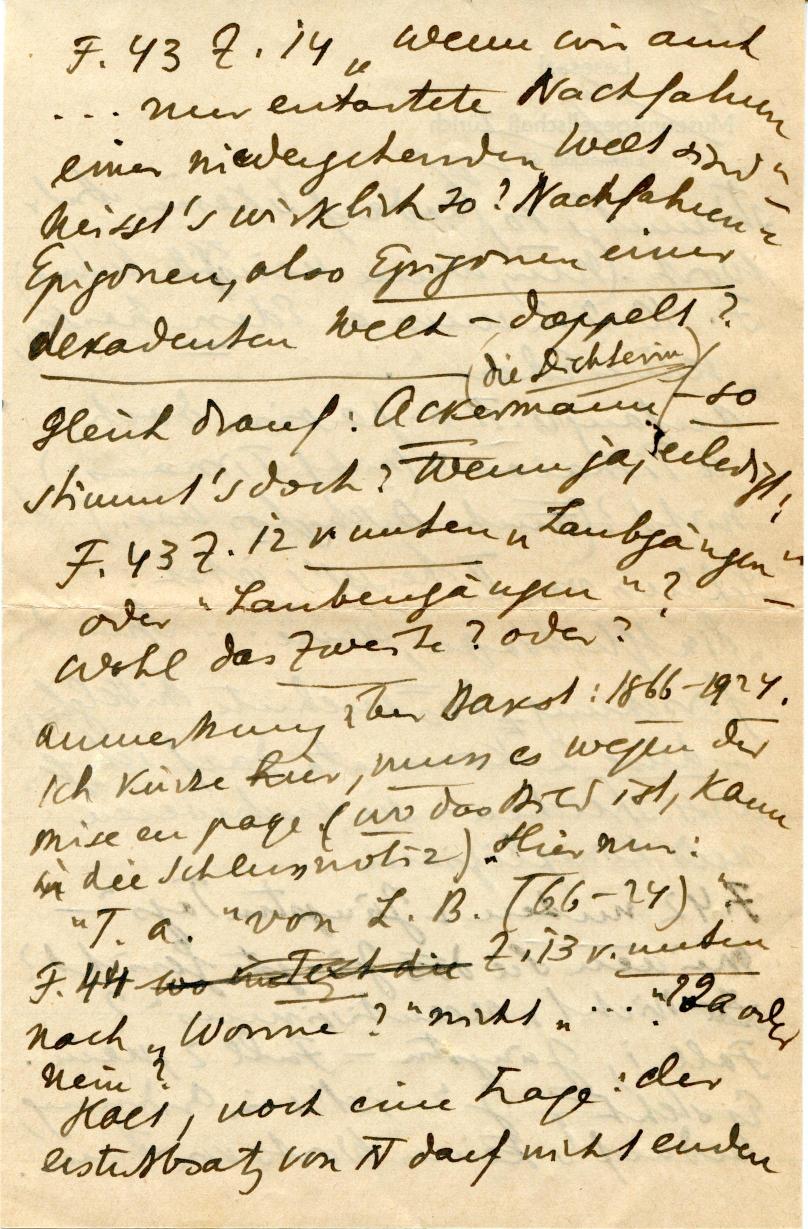 F. 43 Z. 14 „wenn wir auch
... nur entartete Nachfahren
einer niedergehenden Welt sind"
heisst's wirklich so? Nachfahren =
Epigonen, also Epigonen einer
dekadenten Welt – doppelt?
(die Dichterin)
gleich drauf: Ackermann – so
stimmt's doch? Wenn ja, erledigt!
F. 43 Z. 12 v. unten „Laubgängen"
oder "Laubengängen"?
Wohl das Zweite? oder?
Anmerkung über Bakst: 1866–1924.
Ich kürze hier, muss es wegen der
mise en page (wo das Bild ist, kann
in die Schlussnotiz) „Hier nur:
"T. a." von L. B. (66–24)".
F. 44 wo im Text die Z. 13 v. unten
nach „Wonne?" nicht „..."? Ja oder
nein?
Halt, noch eine Frage: der
erste Absatz von IV darf nicht enden